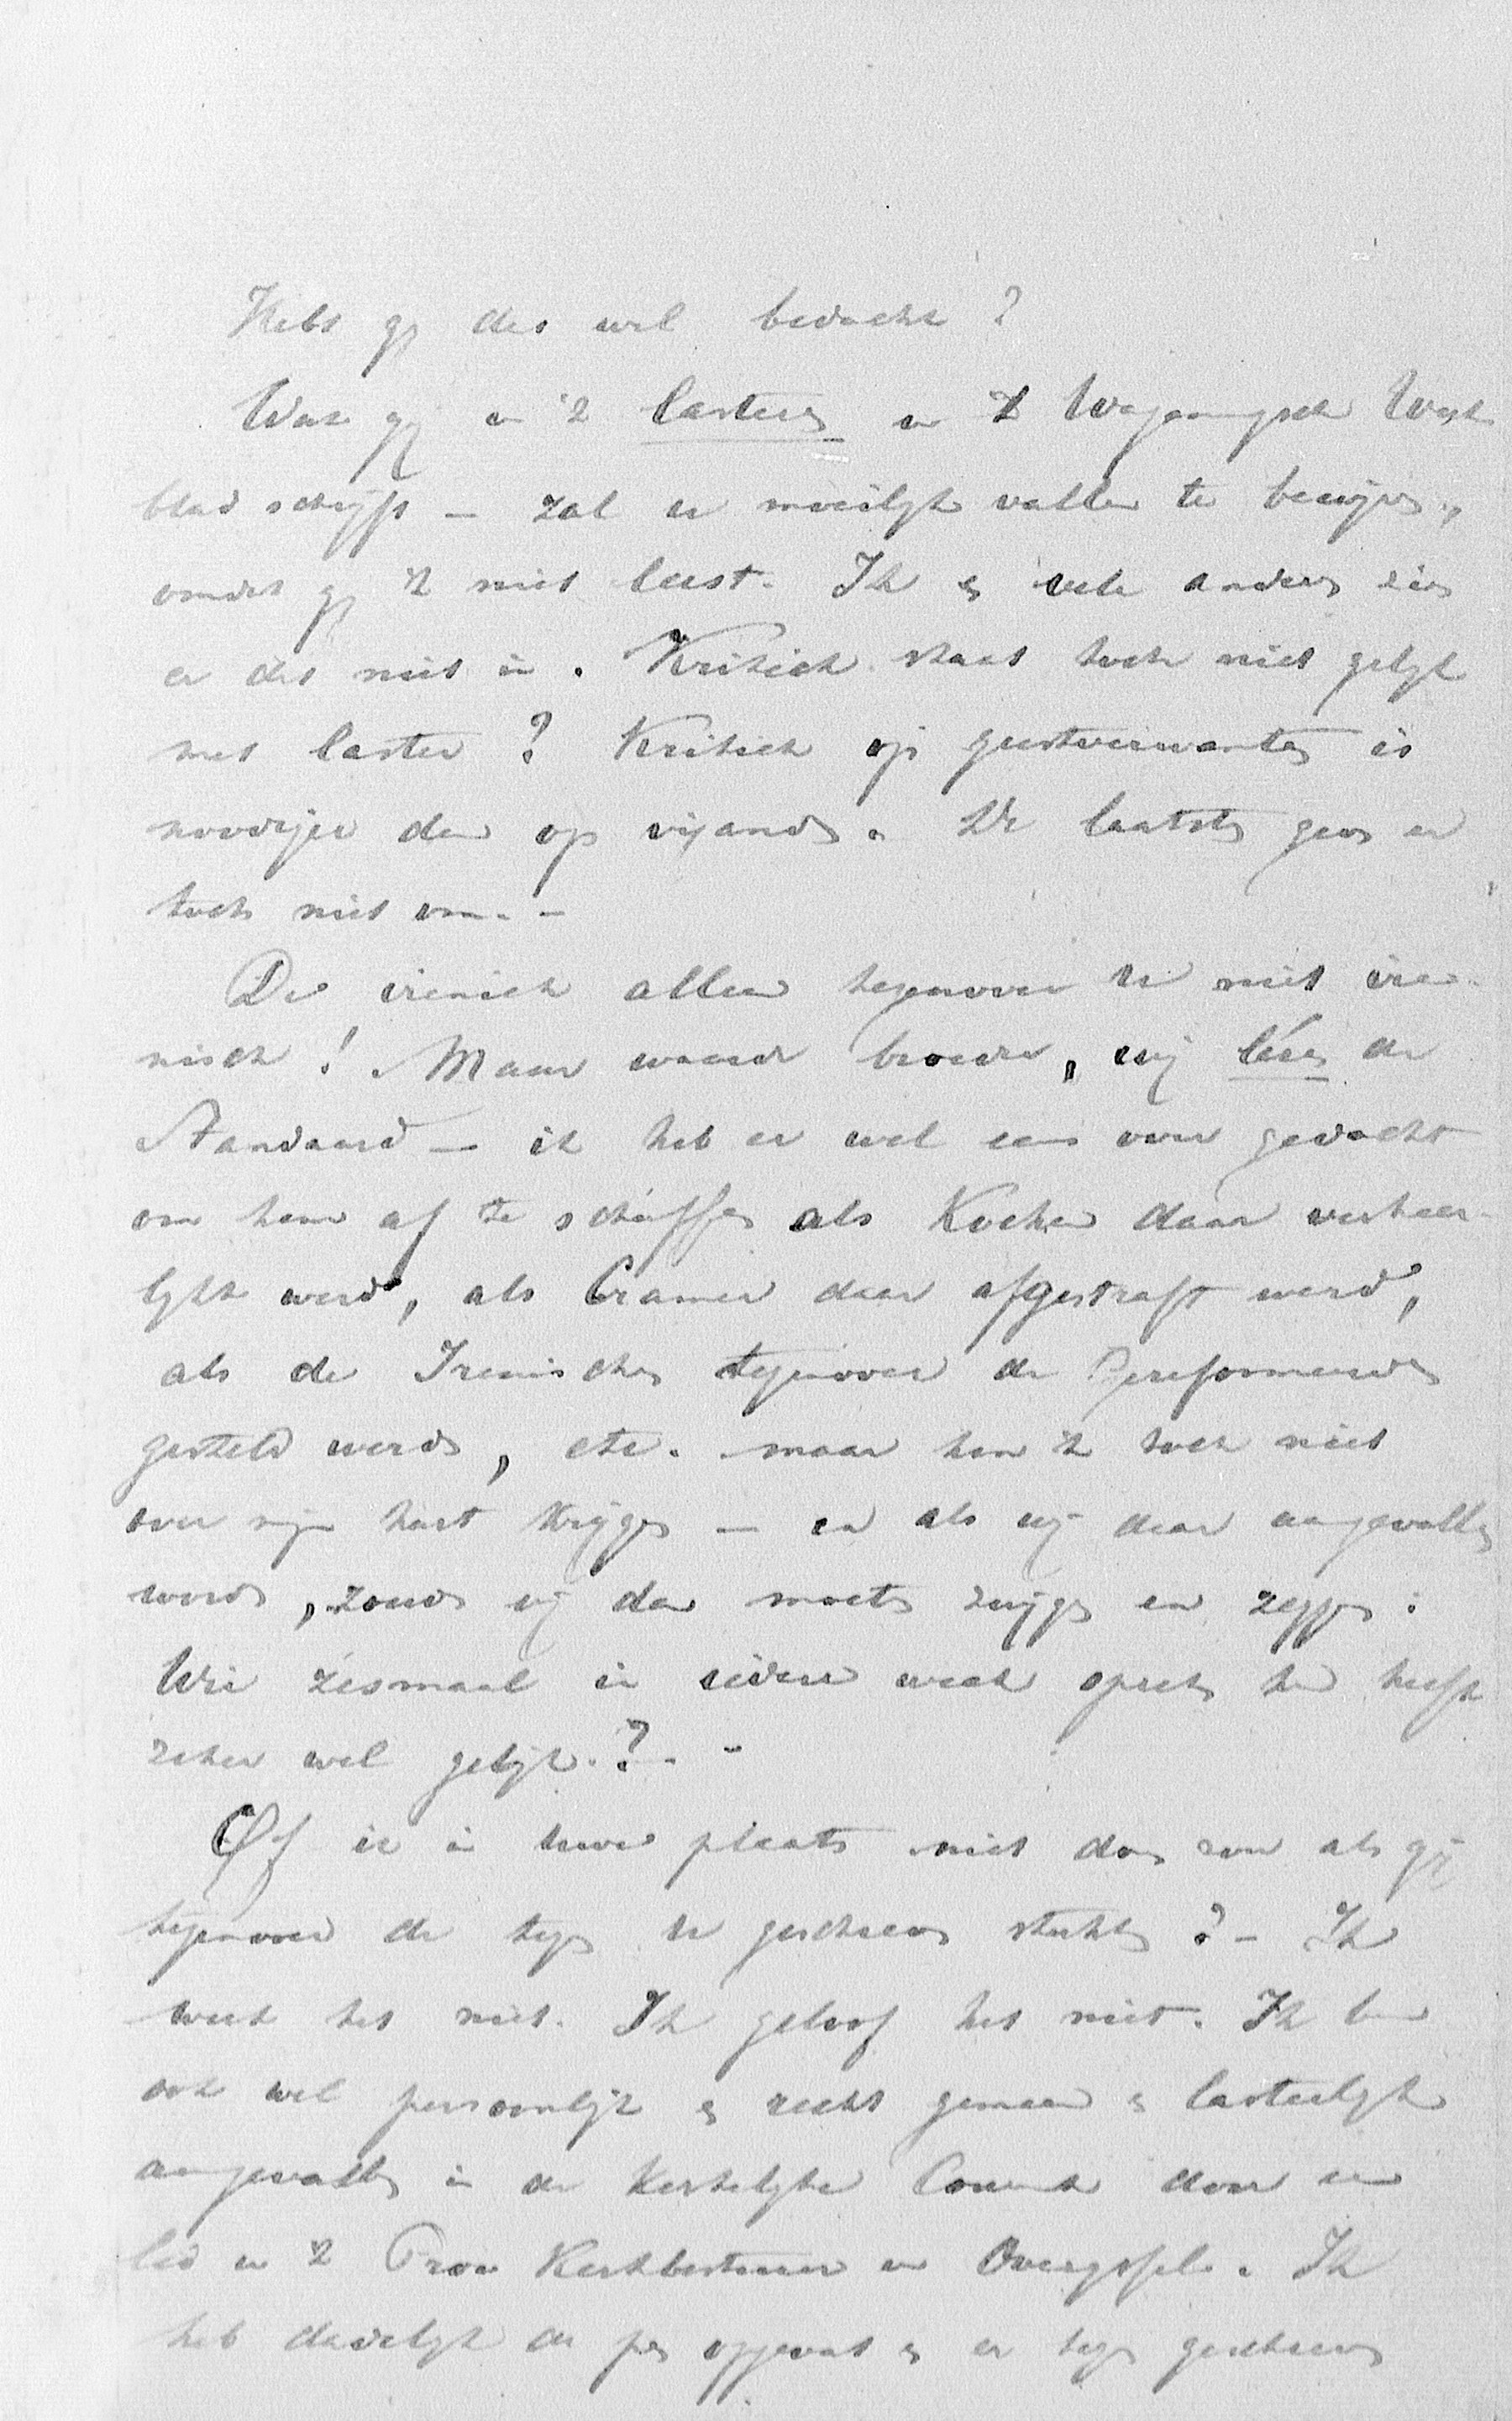 Hebt gij dat wel bedacht?
Wat gij in 't lasteren in 't Wageningsch Week-
blad schrijft – zal u moeilijk vallen te bewijzen,
omdat gij 't niet leest. Ik en vele anderen zien
er dat niet in. Kritiek staat toch niet gelijk
met laster? Kritiek op geestverwanten is
noodiger dan op vijanden. De laatsten geven er
toch niet om. –
De irenisch alleen tegenover de niet ire-
nisch! Maar waarde broeder, wij lézen de
Standaard – ik heb er wel eens over gedacht
om hem af te schaffen als Kuenen daar verheer-
lijkt werd, als Cramer daar afgestraft werd,
als de Irenischen tegenover de Gereformeerden
gesteld werden, etc. maar kon 't toch niet
over mijn hart krijgen – en als wij daar aangevallen
worden, zouden wij dan moeten zwijgen en zeggen:
Wie zesmaal in iedere week spreekt die heeft
zeker wel gelijk? –
Of ik in uwe plaats niet doen zou als gij
tegenover de tegen u geschreven stukken? – Ik
weet het niet. Ik geloof het niet. Ik ben
ook wel persoonlijk en recht gemeen en lasterlijk
aangevallen in de Kerkelijke Courant door een
lid in 't Prov Kerkbestuur in Overijssel. Ik
heb dadelijk de pen opgevat en er tegen geschreven